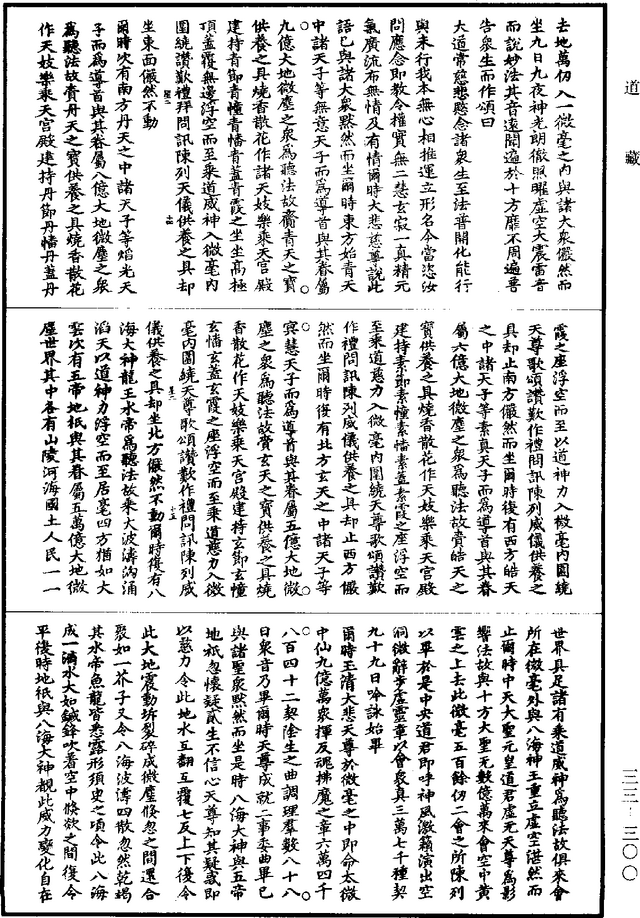 道藏
三三·三〇〇
去地萬仞入一微毫之內與諸大衆儼然而
坐九日九夜神光朗徹照曜虛空大震雷音
而說妙法其音遠聞遍於十方靡不周遍普
告衆生而作頌曰
大道常慈悲愍念諸衆生至法普開化能行
與未行我本無心相推運立形名今當恣汝
問應念即教令權實無二悲玄寂一真精元
氣廣流布無情及有情爾時大悲慈尊說此
語已與諸大衆默然而坐爾時東方始青天
中諸天子等無意天子而爲導首與其眷屬
九億大地微塵之衆爲聽法故賷青天之寶
供養之具燒香散花作諸天妓樂乘天宮殿
建持青節青幢青幡青蓋青霞之坐坐高極
頂蓋覆無邊浮空而至乘道威神入微毫內
圍繞讚歎禮拜問訊陳列天儀供養之具却
坐東面儼然不動
爾時次有南方丹天之中諸天子等焰光天
子而爲導首與其眷屬八億大地微塵之衆
爲聽法故賷丹天之寶供養之具燒香散花
作天妓樂乘天宮殿建持丹節丹幡丹蓋丹
霞之座浮空而至以道神力入微毫內圍繞
天尊歌頌讚歎作禮問訊陳列威儀供養之
具却止南方儼然而坐爾時復有西方皓天
之中諸天子等素真天子而爲導首與其眷
屬六億大地微塵之衆爲聽法故賷皓天之
寶供養之具燒香散花作天妓樂乘天宮殿
建持素節素幢素幡素蓋素霞之座浮空而
至乘道慈力入微毫內圍繞天尊歌頌讚歎
作禮問訊陳列威儀供養之具却止西方儼
然而坐爾時復有北方玄天之中諸天子等
容慧天子而爲導首與其眷屬五億大地微
塵之衆爲聽法故賷玄天之寶供養之具燒
香散花作天妓樂乘天宮殿建持玄節玄幢
玄幡玄蓋玄霞之座浮空而至乘道慈力入微
毫內圍繞天尊歌頌讚歎作禮問訊陳列威
儀供養之具却坐北方儼然不動爾時復有八
海大神龍王水帝爲聽法故乘大波濤洶涌
滔天以道神力浮空而至居毫四方猶如大
雲次有五帝地祇與其眷屬五萬億大地微
塵世界其中各有山陵河海國土人民一一
世界具足諸有乘道威神爲聽法故俱來會
所在微毫外與八海神王重立虛空湛然而
止爾時中天大聖元皇道君虛无天尊爲影
響法故與十方大聖无數億萬來會空中黄
雲之上去此微毫五百餘仞二會之所陳列
以畢於是中央道君即呼神風激籟演出空
洞微辭步虛靈章以會衆真三萬七千種契
九十九日吟詠始畢
爾時玉清大悲天尊於微毫之中即命太微
中仙九億萬衆揮反魂拂魔之章六萬四千
八百四十二契陰生之曲調理羣數八十八
日衆音乃畢爾時天尊成就二事委曲畢已
與諸聖衆默然而坐是時八海大神與五帝
地祇忽懷疑貳生不信心天尊知其疑惑即
以慈力令此地水互翻互覆七反上下後令
此大地震動坼裂碎成微塵倏忽之間還合
聚如一芥子又令八海波濤四散忽然乾竭
其水帝魚龍皆悉露形須臾之頃令此八海
成一滴水大如鍼鋒吹着空中倏歘之間復令
平後時地祇與八海大神覩此威力變化自在